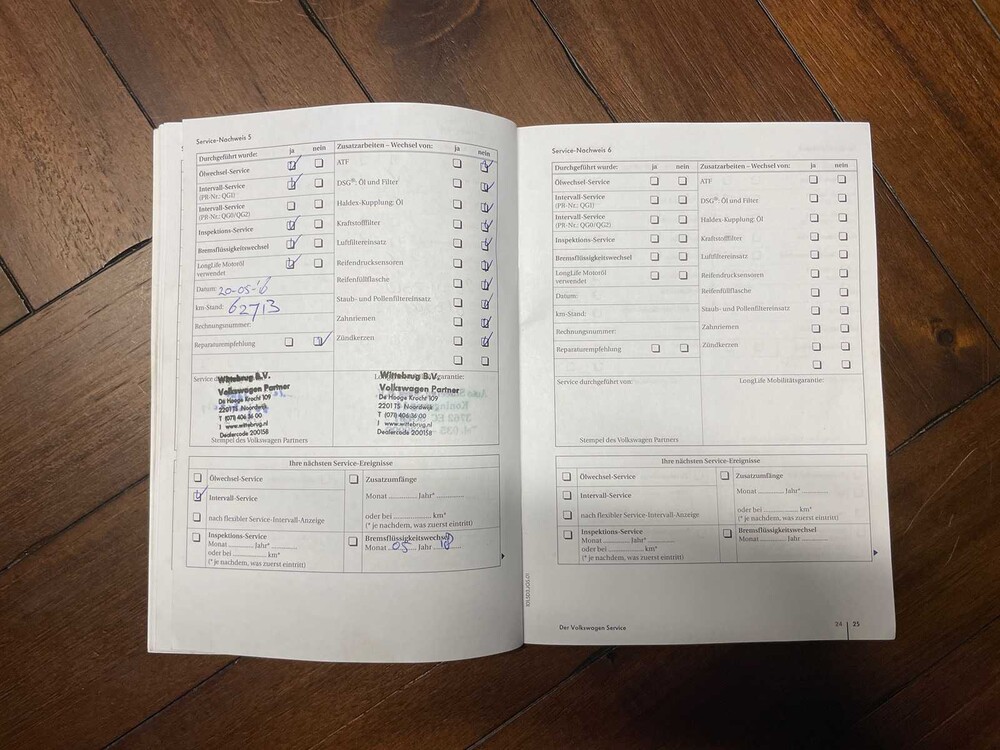 Service-Nachweis 5
Durchgeführt wurde: ja nein Zusatzarbeiten – Wechsel von: ja nein
Ölwechsel-Service ATF
Intervall-Service
(PR-Nr.: QG1) DSG®: Öl und Filter
Intervall-Service
(PR-Nr.: QG0/QG2) Haldex-Kupplung: Öl
Inspektions-Service Kraftstofffilter
Bremsflüssigkeitswechsel Luftfiltereinsatz
LongLife Motoröl
verwendet Reifendrucksensoren
Datum: 20-05-16 Reifenfüllflasche
km-Stand: 62713 Staub- und Pollenfiltereinsatz
Rechnungsnummer: Zahnriemen
Reparaturempfehlung Zündkerzen
Wittebrug B.V.
Volkswagen Partner
De Hooge Krocht 109
2201 TS Noordwijk
T (071) 406 36 00
I www.wittebrug.nl
Dealercode 200158
Stempel des Volkswagen Partners
Wittebrug B.V.
Volkswagen Partner
De Hooge Krocht 109
2201 TS Noordwijk
T (071) 406 36 00
I www.wittebrug.nl
Dealercode 200158
Ihre nächsten Service-Ereignisse
Ölwechsel-Service
Intervall-Service
nach flexibler Service-Intervall-Anzeige
Inspektions-Service
Monat ............ Jahr* ............
oder bei ............ km*
(* je nachdem, was zuerst eintritt)
Zusatzumfänge
Monat ............ Jahr* ............
oder bei ............ km*
(* je nachdem, was zuerst eintritt)
Bremsflüssigkeitswechsel
Monat 05 Jahr 18
Service-Nachweis 6
Durchgeführt wurde: ja nein Zusatzarbeiten – Wechsel von: ja nein
Ölwechsel-Service ATF
Intervall-Service
(PR-Nr.: QG1) DSG®: Öl und Filter
Intervall-Service
(PR-Nr.: QG0/QG2) Haldex-Kupplung: Öl
Inspektions-Service Kraftstofffilter
Bremsflüssigkeitswechsel Luftfiltereinsatz
LongLife Motoröl
verwendet Reifendrucksensoren
Datum: Reifenfüllflasche
km-Stand: Staub- und Pollenfiltereinsatz
Rechnungsnummer: Zahnriemen
Reparaturempfehlung Zündkerzen
Service durchgeführt von: LongLife Mobilitätsgarantie:
Stempel des Volkswagen Partners
Ihre nächsten Service-Ereignisse
Ölwechsel-Service
Intervall-Service
nach flexibler Service-Intervall-Anzeige
Inspektions-Service
Monat ............ Jahr* ............
oder bei ............ km*
(* je nachdem, was zuerst eintritt)
Zusatzumfänge
Monat ............ Jahr* ............
oder bei ............ km*
(* je nachdem, was zuerst eintritt)
Bremsflüssigkeitswechsel
Monat ............ Jahr ............
Der Volkswagen Service 24 25